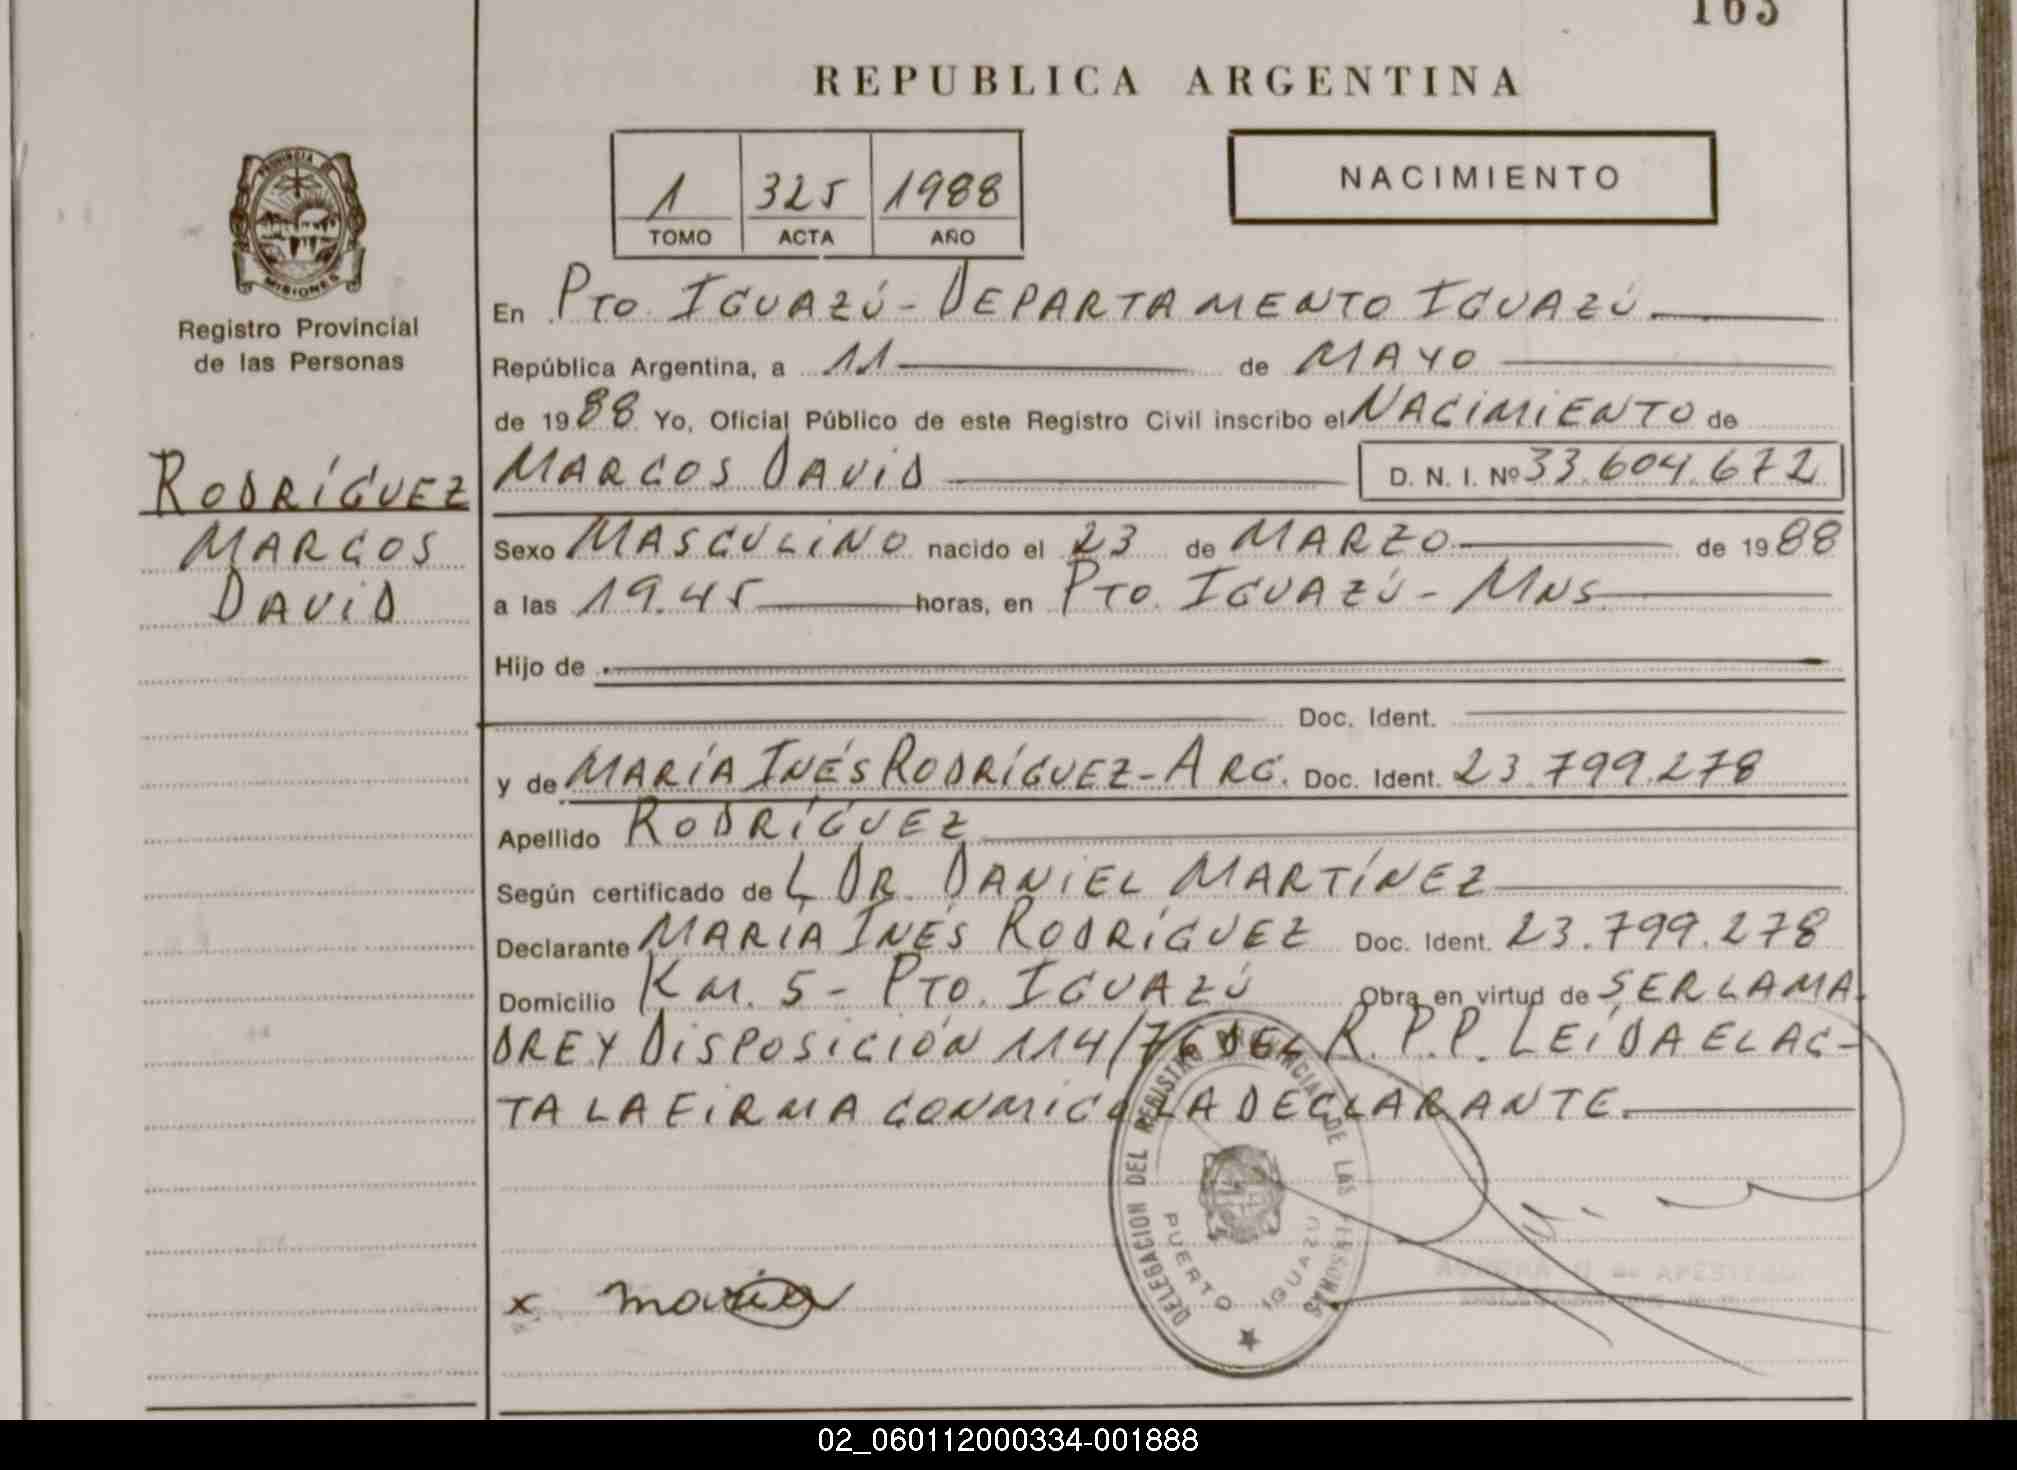 163
REPUBLICA ARGENTINA
PROVINCIA DE
MISIONES
Registro Provincial
de las Personas
1 325 1988
TOMO ACTA AÑO
NACIMIENTO
En PTO. IGUAZÚ - DEPARTAMENTO IGUAZÚ
República Argentina, a 11 de MAYO
de 1988 Yo, Oficial Público de este Registro Civil inscribo el NACIMIENTO de
RODRÍGUEZ
MARCOS
DAVID
MARCOS DAVID D. N. I. Nº 33.604.672
Sexo MASCULINO nacido el 23 de MARZO de 1988
a las 19.45 horas, en PTO. IGUAZÚ - MNS.
Hijo de
Doc. Ident.
y de MARÍA INÉS RODRÍGUEZ - ARG. Doc. Ident. 23.799.278
Apellido RODRÍGUEZ
Según certificado de L DR. DANIEL MARTÍNEZ
Declarante MARÍA INÉS RODRÍGUEZ Doc. Ident. 23.799.278
Domicilio KM. 5 - PTO. IGUAZÚ Obra en virtud de SER LA MA-
DRE Y DISPOSICIÓN 114/76 DEL R.P.P. LEÍDA EL AC-
TA LA FIRMA CONMIGO LA DECLARANTE.
DELEGACION DEL REGISTRO PROVINCIAL DE LAS PERSONAS
PUERTO IGUAZU
x maria
02_060112000334-001888